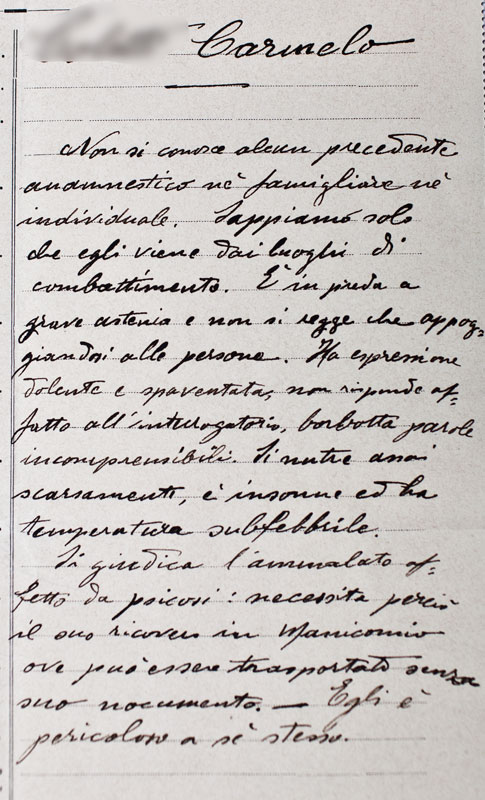 Carmelo
Non si conosce alcun precedente
anamnestico nè famigliare nè
individuale. Sappiamo solo
che egli viene dai luoghi di
combattimento. È in preda a
grave astenia e non si regge che appog=
giandosi alle persone. Ha espressione
dolente e spaventata, non risponde af=
fatto all'interrogatorio, borbotta parole
incomprensibili. Si nutre assai
scarsamente, è insonne ed ha
temperatura subfebbrile.
Si giudica l'ammalato af=
fetto da psicosi: necessita perciò
il suo ricovero in Manicomio
ove può essere trasportato senza
suo nocumento. — Egli è
pericoloso a sè stesso.